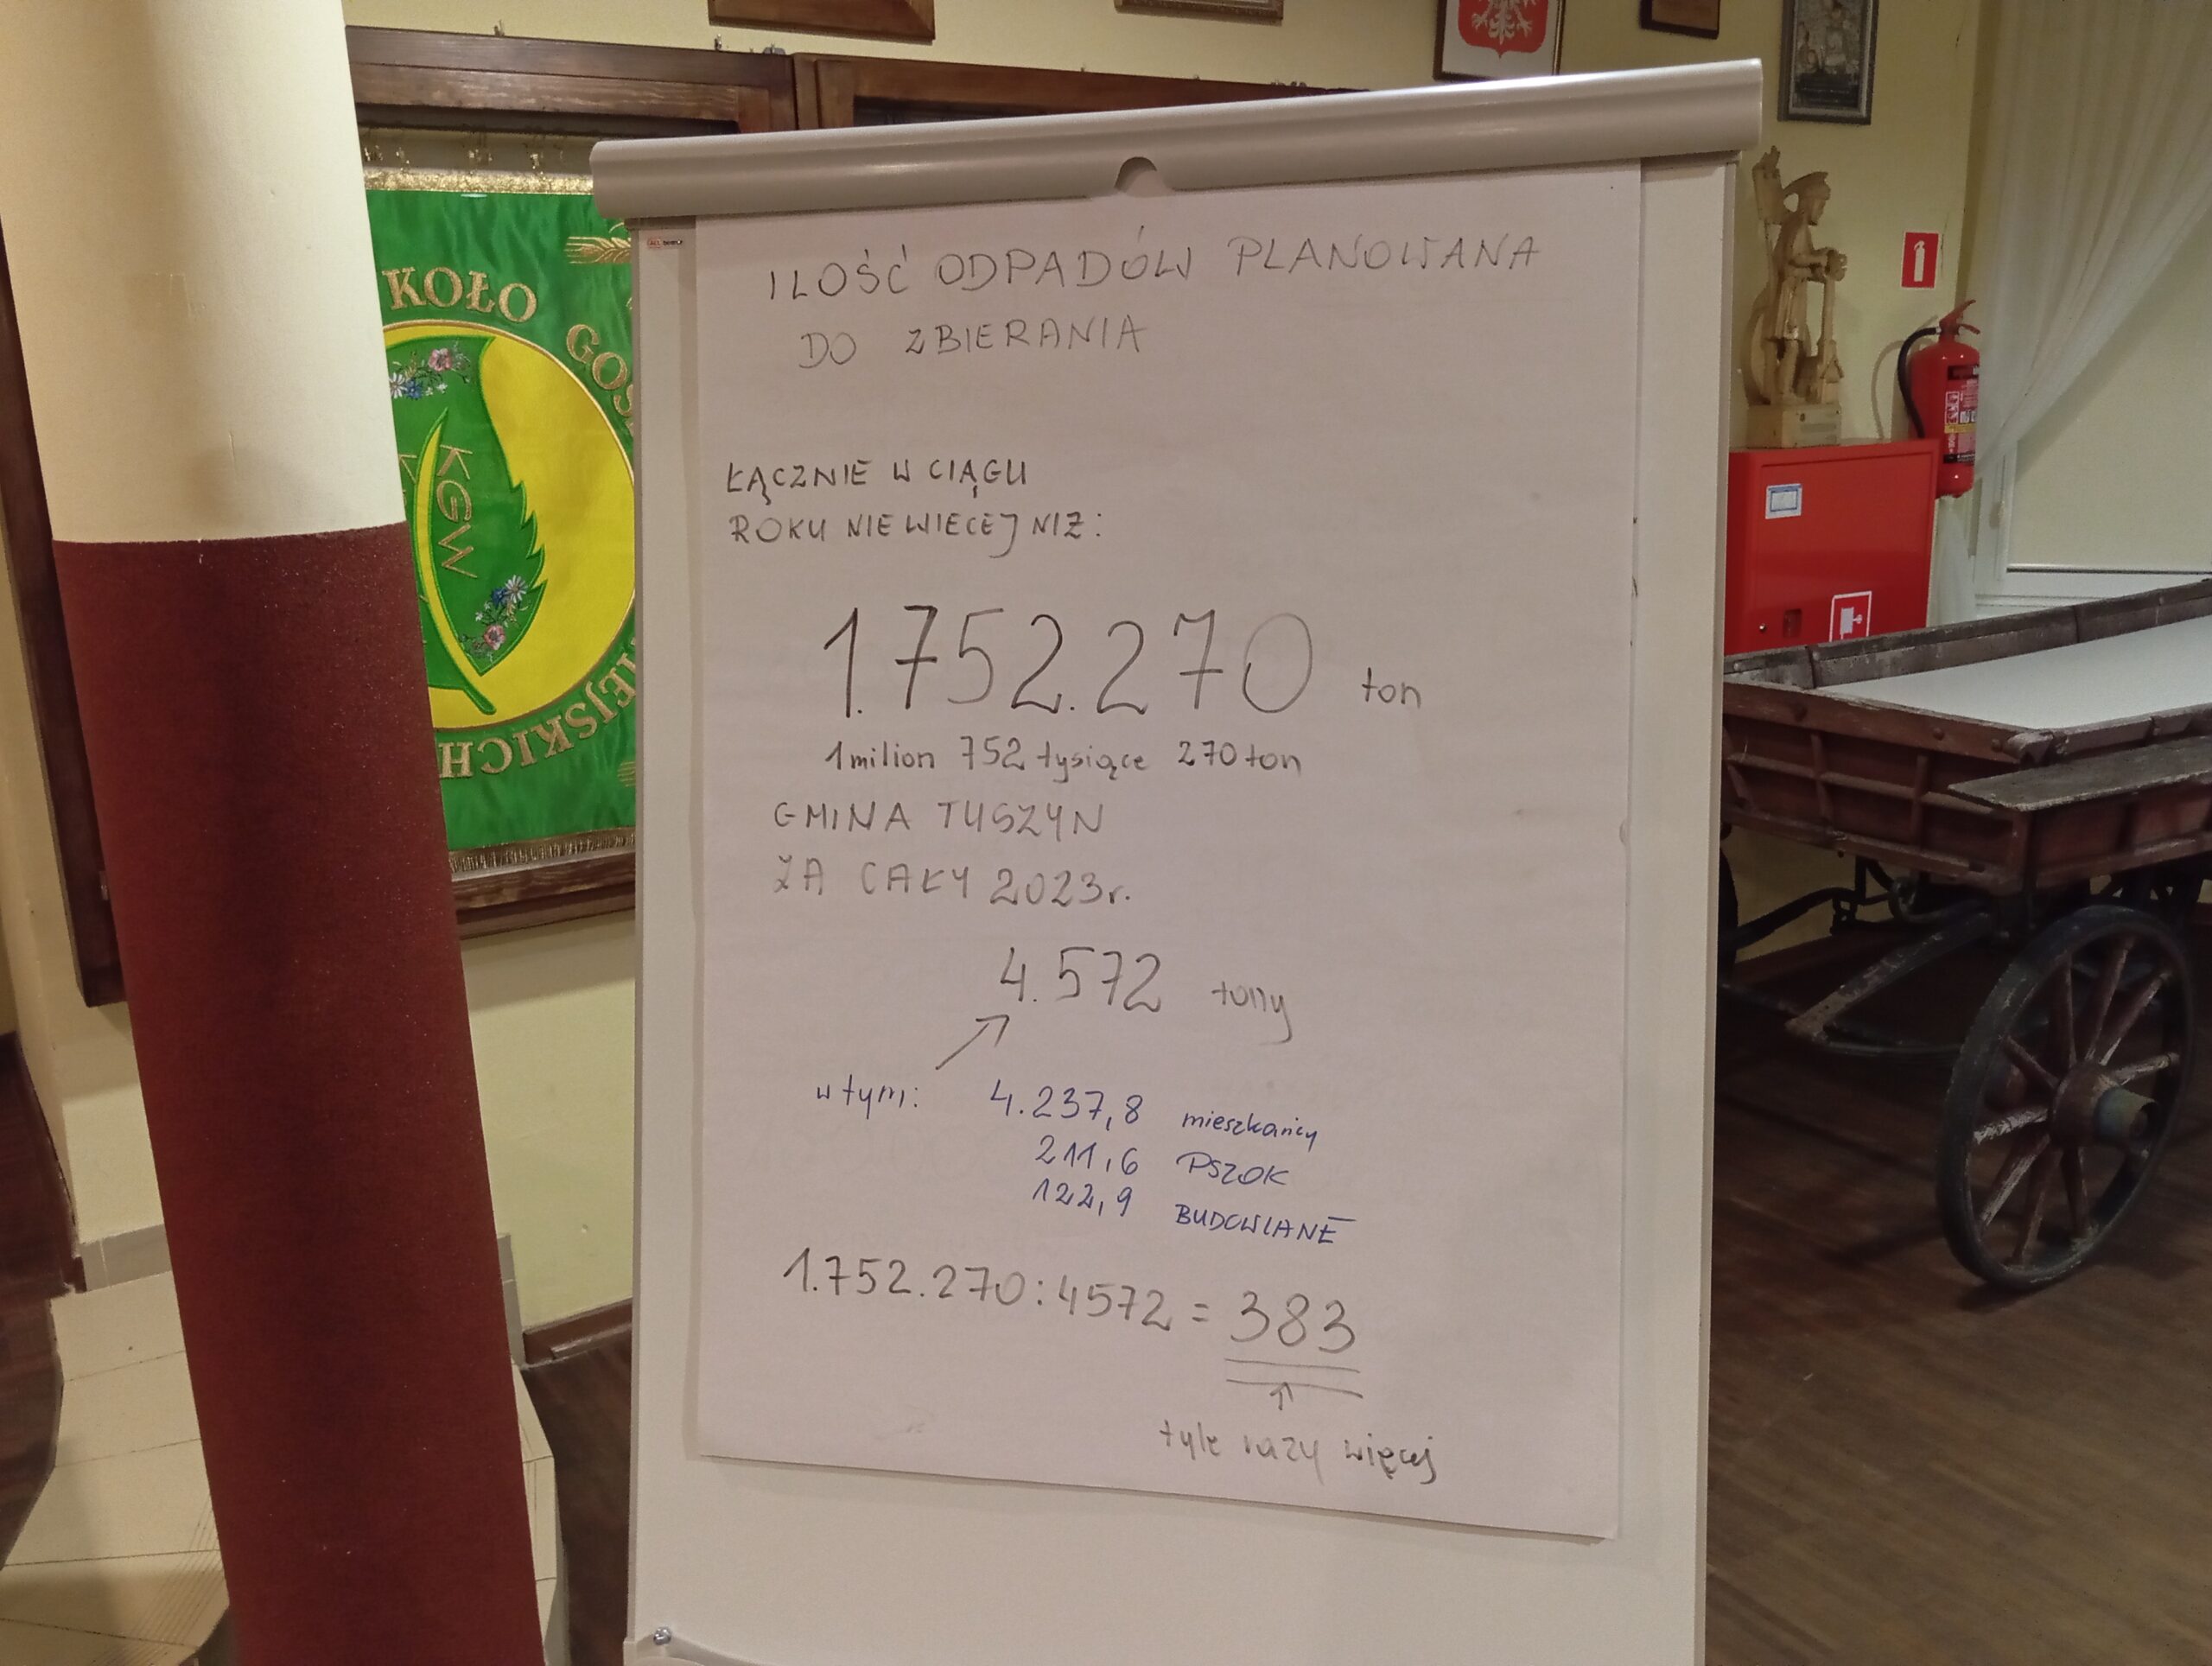 KOŁO
GOS
WIEJSKICH
KGW
ILOŚĆ ODPADÓW PLANOWANA
DO ZBIERANIA
ŁĄCZNIE W CIĄGU
ROKU NIE WIECEJ NIŻ:
1.752.270 ton
1 milion 752 tysiące 270 ton
GMINA TUSZYN
ZA CAŁY 2023r.
4.572 tony
w tym: 4.237,8 mieszkańcy
211,6 PSZOK
122,9 BUDOWLANE
1.752.270:4572 = 383
tyle razy więcej